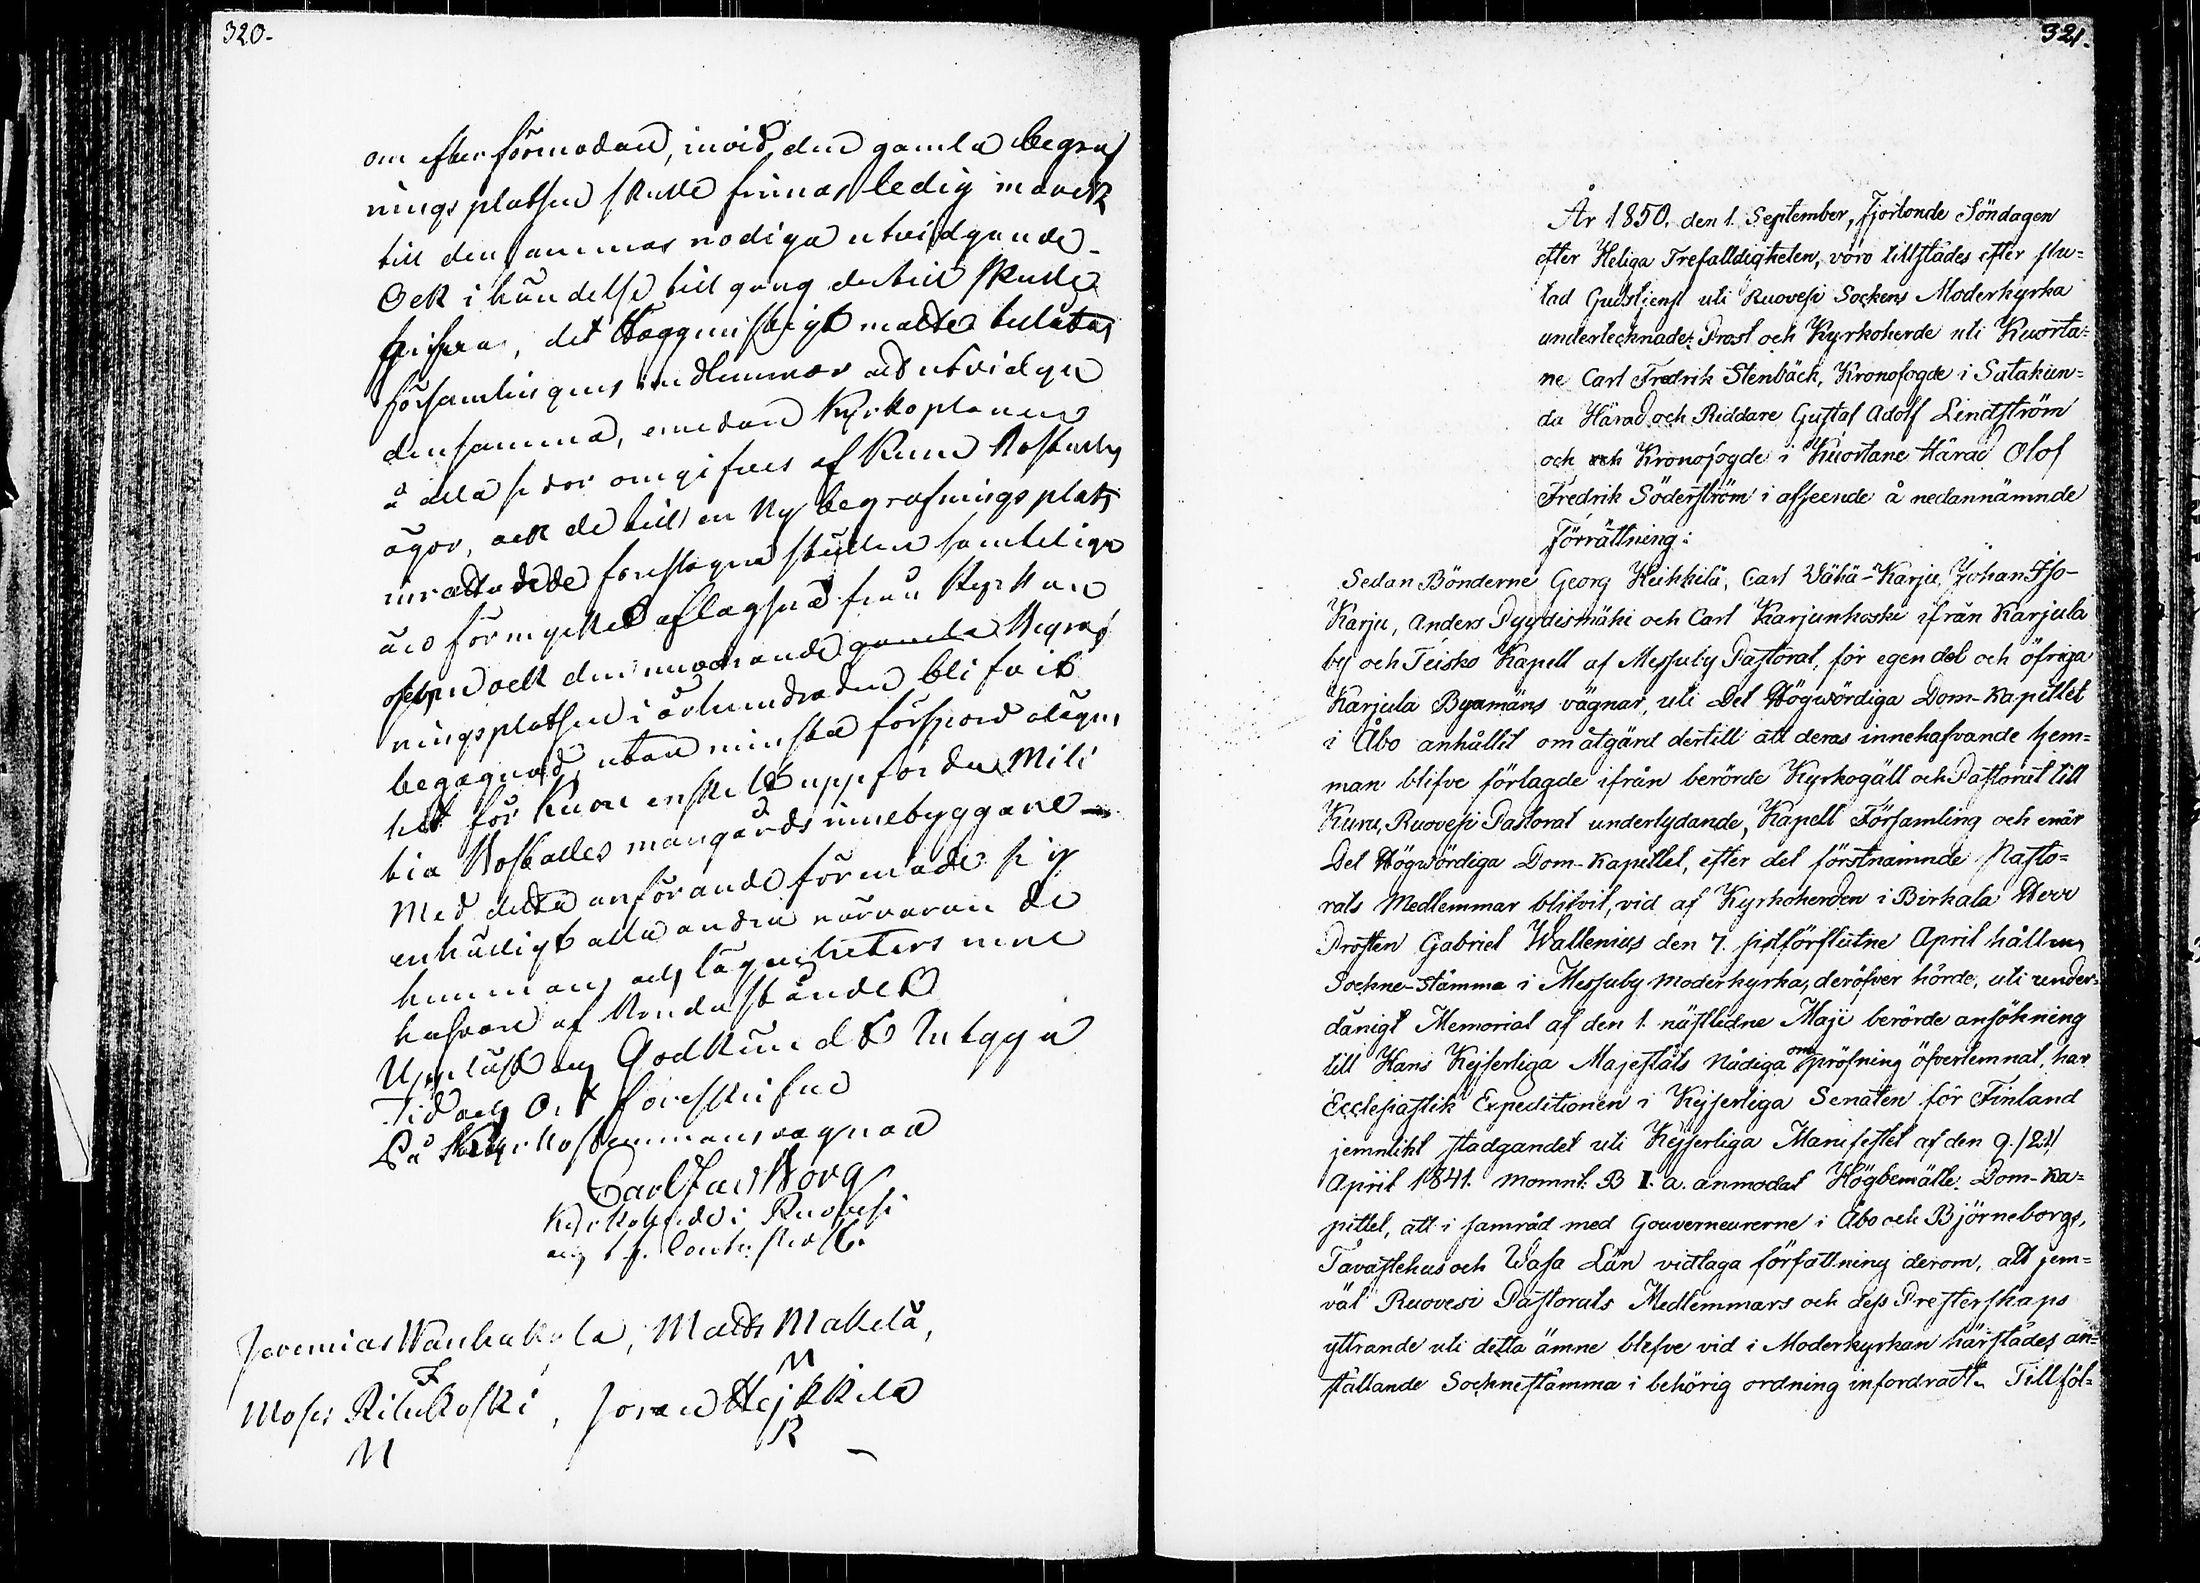 320.
om efter förmodan, invid den gamla begraf
nings platsen skulle finnas ledig mark
till den sammas nödiga utvidgande
Ock i händelse till gång dertill skulle
det Höggunstigt måtte tillåtas
församlingens medlemmar att utvidga
densamma, emedan Kyrkoplanen
å alla sidor omgifves af Ruun Rostholls
ägor, ock de till en Ny begrafningsplats
inrättande föreslagna ställen samtelige
äro för mycket aflägsna från Kyrkan
ock den nuvarande gamla Begraf
ningsplatsen i århundraden blifvit
begagnad, utan minsta förspord olägen
het för Ruun enskildt uppförda Mili
tia Boställes mangårds innebyggare
Med detta anförande förenade sig
enhälligt alla andra närvarande
hemmans och lägenheters inne
hafvare af Bondeståndet
Uppläst och Godkändt Intyga
Tid och Ort föreskrifne
På Kyrkostemmans vägnar
Carl Borg
Kyrkoherde i Ruovesi
och t.f. Contr. Prost.
Jeremias Wanhakala, Matts Mäkelä,
F M
Moses Riluskoski, Johan Heikkilä
M R
321.
År 1850. den 1. September, Fjortonde Söndagen
efter Heliga Trefalldigheten, voro tillstädes efter slu=
tad Gudstjenst uti Ruovesi Sockens Moderkyrka
undertecknade: Prost och Kyrkoherde uti Kuorta=
ne Carl Fredrik Stenbäck, Kronofogde i Satakun=
da Härad och Riddare Gustaf Adolf Lindström
och och Kronofogde i Kuortane Härad Olof
Fredrik Söderström i afseende å nedannämnde
Förrättning:
Sedan Bönderne Georg Heikkilä, Carl Wähä-Karju, Johan Iso-
Karju, Anders Pyydysmäki och Carl Karjunkoski ifrån Karjula
by och Teisko Kapell af Messuby Pastorat, för egen del och öfriga
Karjula Byamäns vägnar, uti Det Högwördiga Dom-Kapitlet
i Åbo anhållit om åtgärd dertill att deras innehafvande hem=
man blifve förlagde ifrån berörde Kyrkogäll och Pastorat till
Kuru, Ruovesi Pastorat underlydande, Kapell Församling och enär
Det Högwördiga Dom-Kapitlet, efter det förstnämnde Pasto=
rats Medlemmar blifvit, vid af Kyrkoherden i Birkala Herr
Prosten Gabriel Wallenius den 7. sistförflutne April hållen
Sockne-Stämma i Messuby Moderkyrka, deröfver hörde, uti under=
dånigt Memorial af den 1. nästledne Maji berörde ansökning
till Hans Kejserliga Majestäts Nådiga ompröfning öfverlemnat, har
Ecclesiastik Expeditionen i Kejserliga Senaten för Finland
jemnlikt stadgandet uti Kejserliga Manifestet af den 9./21/
April 1841. momnt. B I. a. anmodat Högbemälte Dom-Ka=
pittel, att i samråd med Gouverneurerne i Åbo och Björneborgs,
Tavastehus och Wasa Län vidtaga författning derom, att jem=
väl Ruovesi Pastorats Medlemmars och dess Presterskaps
yttrande uti detta ämne blefve vid i Moderkyrkan härstädes an=
ställande Sockenstämma i behörig ordning infordradt. Tillföl=